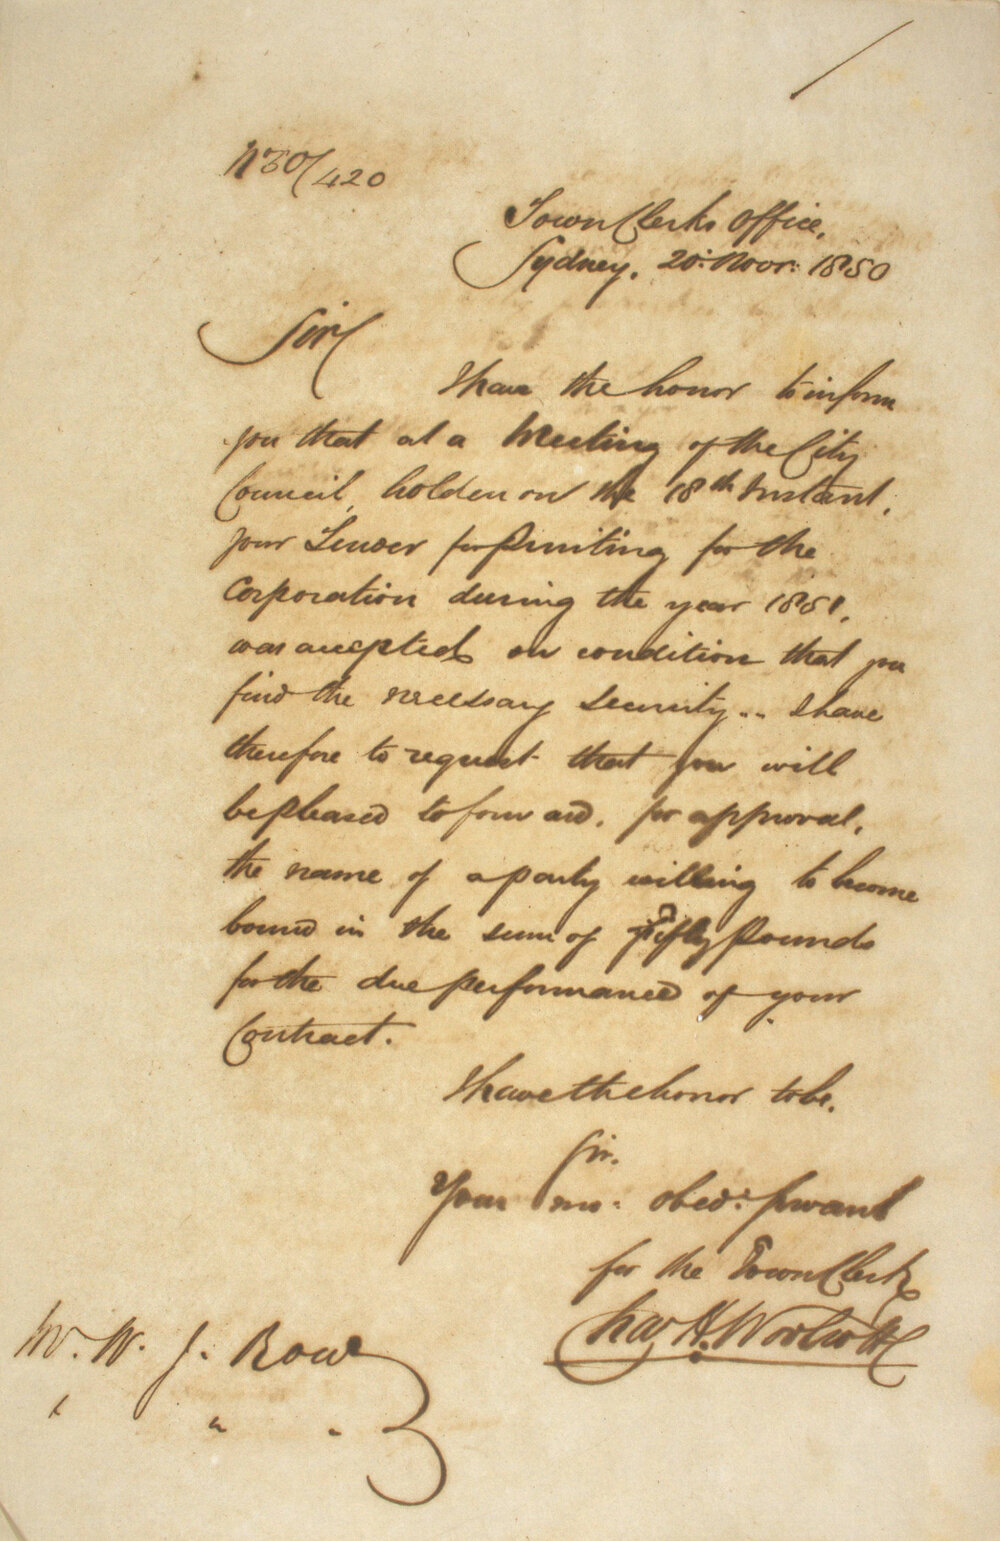 No 50/420
Town Clerks Office,
Sydney. 20: Novr: 1850
Sir
I have the honor to inform
you that at a Meeting of the City
Council, holden on the 18th Instant,
your Tender for Printing for the
Corporation during the year 1851,
was accepted on condition that you
find the necessary Security.. I have
therefore to request that you will
be pleased to forward, for approval,
the name of a party willing to become
bound in the sum of Fifty Pounds
for the due performance of your
Contract.
I have the honor to be.
Sir.
Your mo: obedt: Servant
for the Town Clerk
Chas H. Woolcott
Mr. W. J. Row